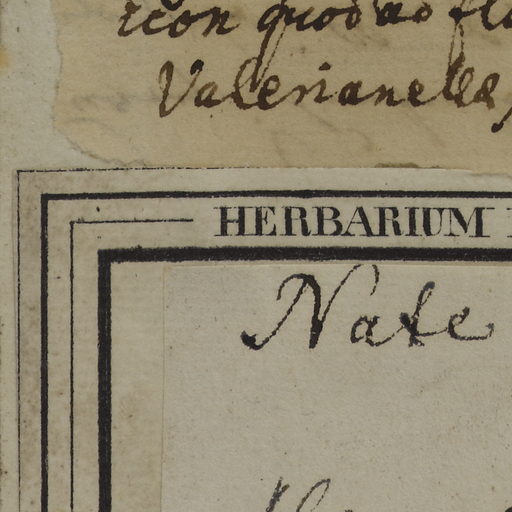 icon quod ad
Valerianellæ,
HERBARIUM
Nate